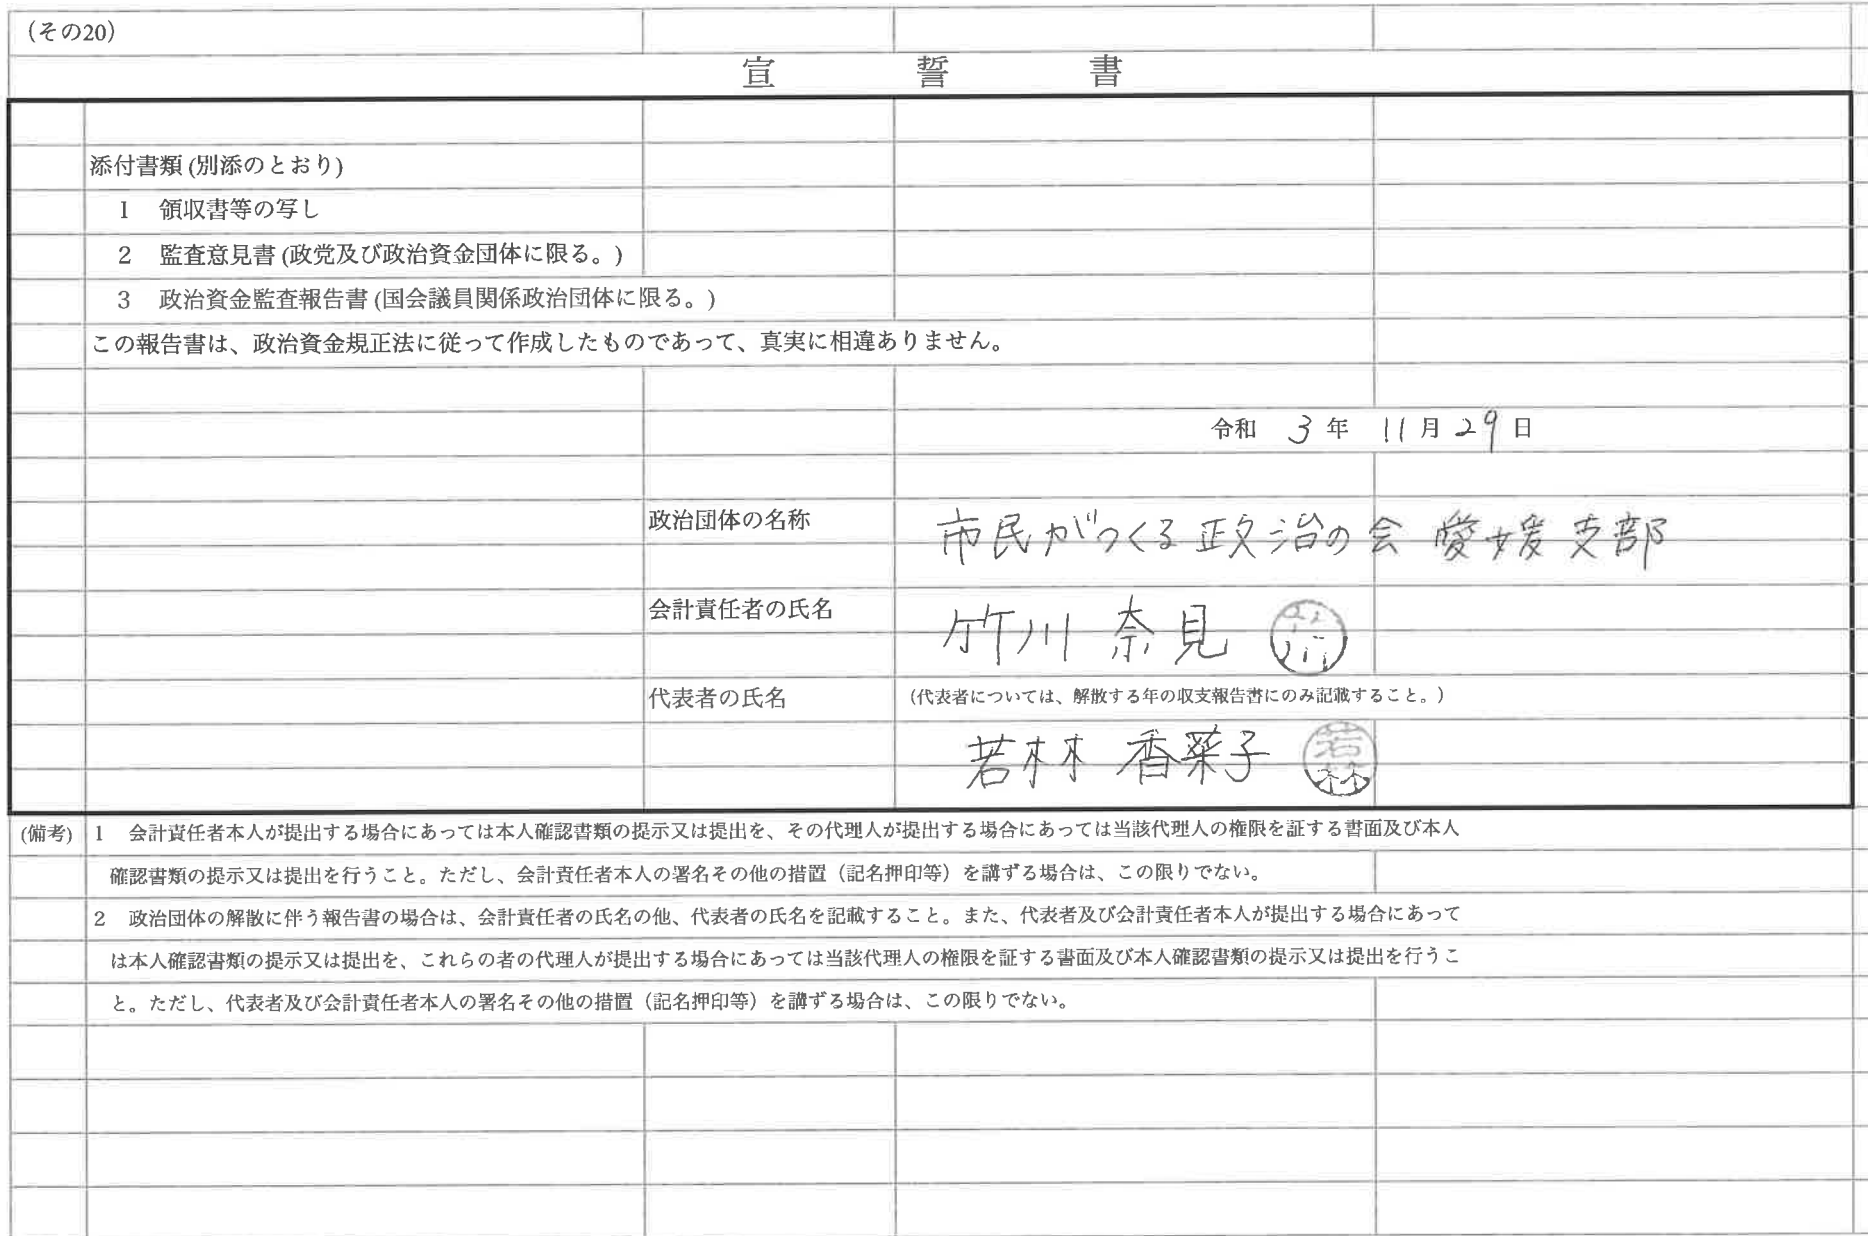 (その20)
宣誓書
添付書類 (別添のとおり)
1 領収書等の写し
2 監査意見書 (政党及び政治資金団体に限る。)
3 政治資金監査報告書 (国会議員関係政治団体に限る。)
この報告書は、政治資金規正法に従って作成したものであって、真実に相違ありません。
令和 3 年 11 月 29 日
政治団体の名称 市民がつくる政治の会 愛媛支部
会計責任者の氏名 竹川 奈見 竹川
代表者の氏名 (代表者については、解散する年の収支報告書にのみ記載すること。)
若林 香菜子 若林
(備考) 1 会計責任者本人が提出する場合にあっては本人確認書類の提示又は提出を、その代理人が提出する場合にあっては当該代理人の権限を証する書面及び本人
確認書類の提示又は提出を行うこと。ただし、会計責任者本人の署名その他の措置（記名押印等）を講ずる場合は、この限りでない。
2 政治団体の解散に伴う報告書の場合は、会計責任者の氏名の他、代表者の氏名を記載すること。また、代表者及び会計責任者本人が提出する場合にあって
は本人確認書類の提示又は提出を、これらの者の代理人が提出する場合にあっては当該代理人の権限を証する書面及び本人確認書類の提示又は提出を行うこ
と。ただし、代表者及び会計責任者本人の署名その他の措置（記名押印等）を講ずる場合は、この限りでない。